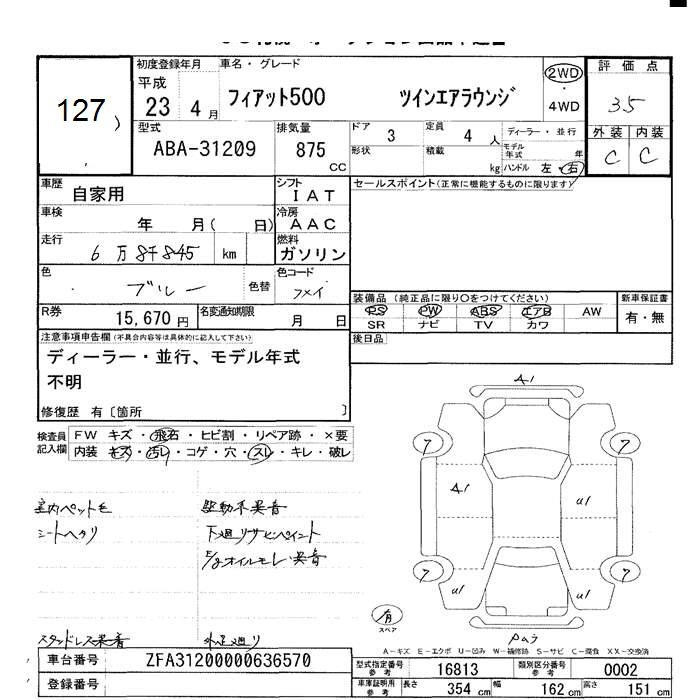 127
初度登録年月
平成
23 4月
車名・グレード
フィアット500 ツインエアラウンジ
2WD
・
4WD
評価点
3.5
外装 内装
C C
型式
ABA-31209
排気量
875
CC
ドア
3
定員
4 人
形状
積載
kg
ディーラー・並行
モデル年式 年
ハンドル 左・右
車歴
自家用
シフト
IAT
セールスポイント(正常に機能するものに限ります)
車検
年 月( 日)
冷房
AAC
走行
6万8千845 km
燃料
ガソリン
色
ブルー
色替
色コード
R券
15,670円
名変通知期限
月 日
装備品 (純正品に限り○をつけてください)
PS PW ABS エアB AW
SR ナビ TV カワ
新車保証書
有・無
後日品
注意事項申告欄(不具合内容等は具体的に記入して下さい)
ディーラー・並行、モデル年式
不明
修復歴 有〔箇所 〕
検査員
記入欄
FW キズ・飛石・ヒビ割・リペア跡・×要
内装 キズ・汚レ・コゲ・穴・スレ・キレ・破レ
室内ペット毛
シートヘタリ
駆動系異音
下廻リサビペイント
E/gオイルモレ・異音
スタッドレス異音
外足廻り
A1
ア
ア
A1
U1
ア
ア
U1
U1
有
スペア
A-キズ E-エクボ U-凹み W-補修跡 S-サビ C-腐食 XX-交換済
車台番号
ZFA31200000636570
登録番号
型式指定番号
参考
16813
類別区分番号
参考
0002
車庫証明用
参考
長さ 354 cm
幅 162 cm
高さ 151 cm